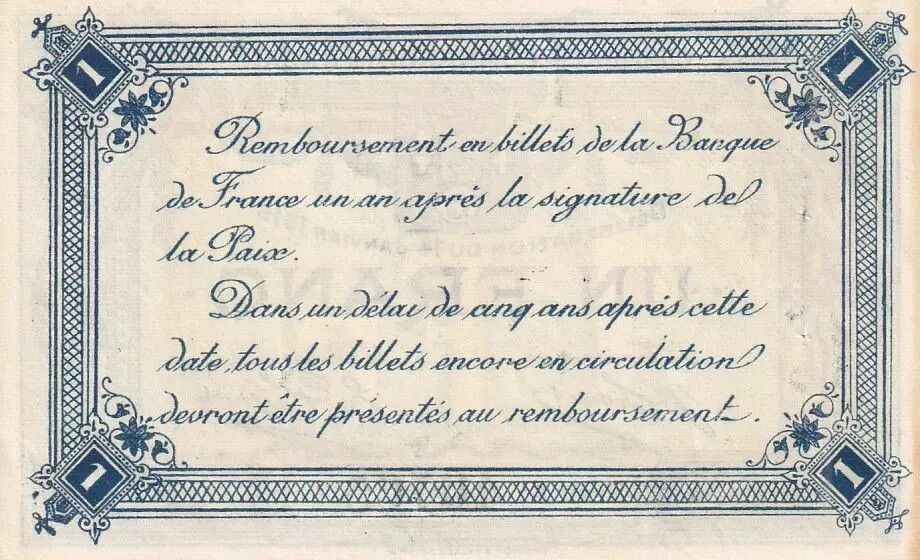 1 1
Remboursement en billets de la Banque
de France un an après la signature de
la Paix.
Dans un délai de cinq ans après cette
date, tous les billets encore en circulation
devront être présentés au remboursement.
1 1